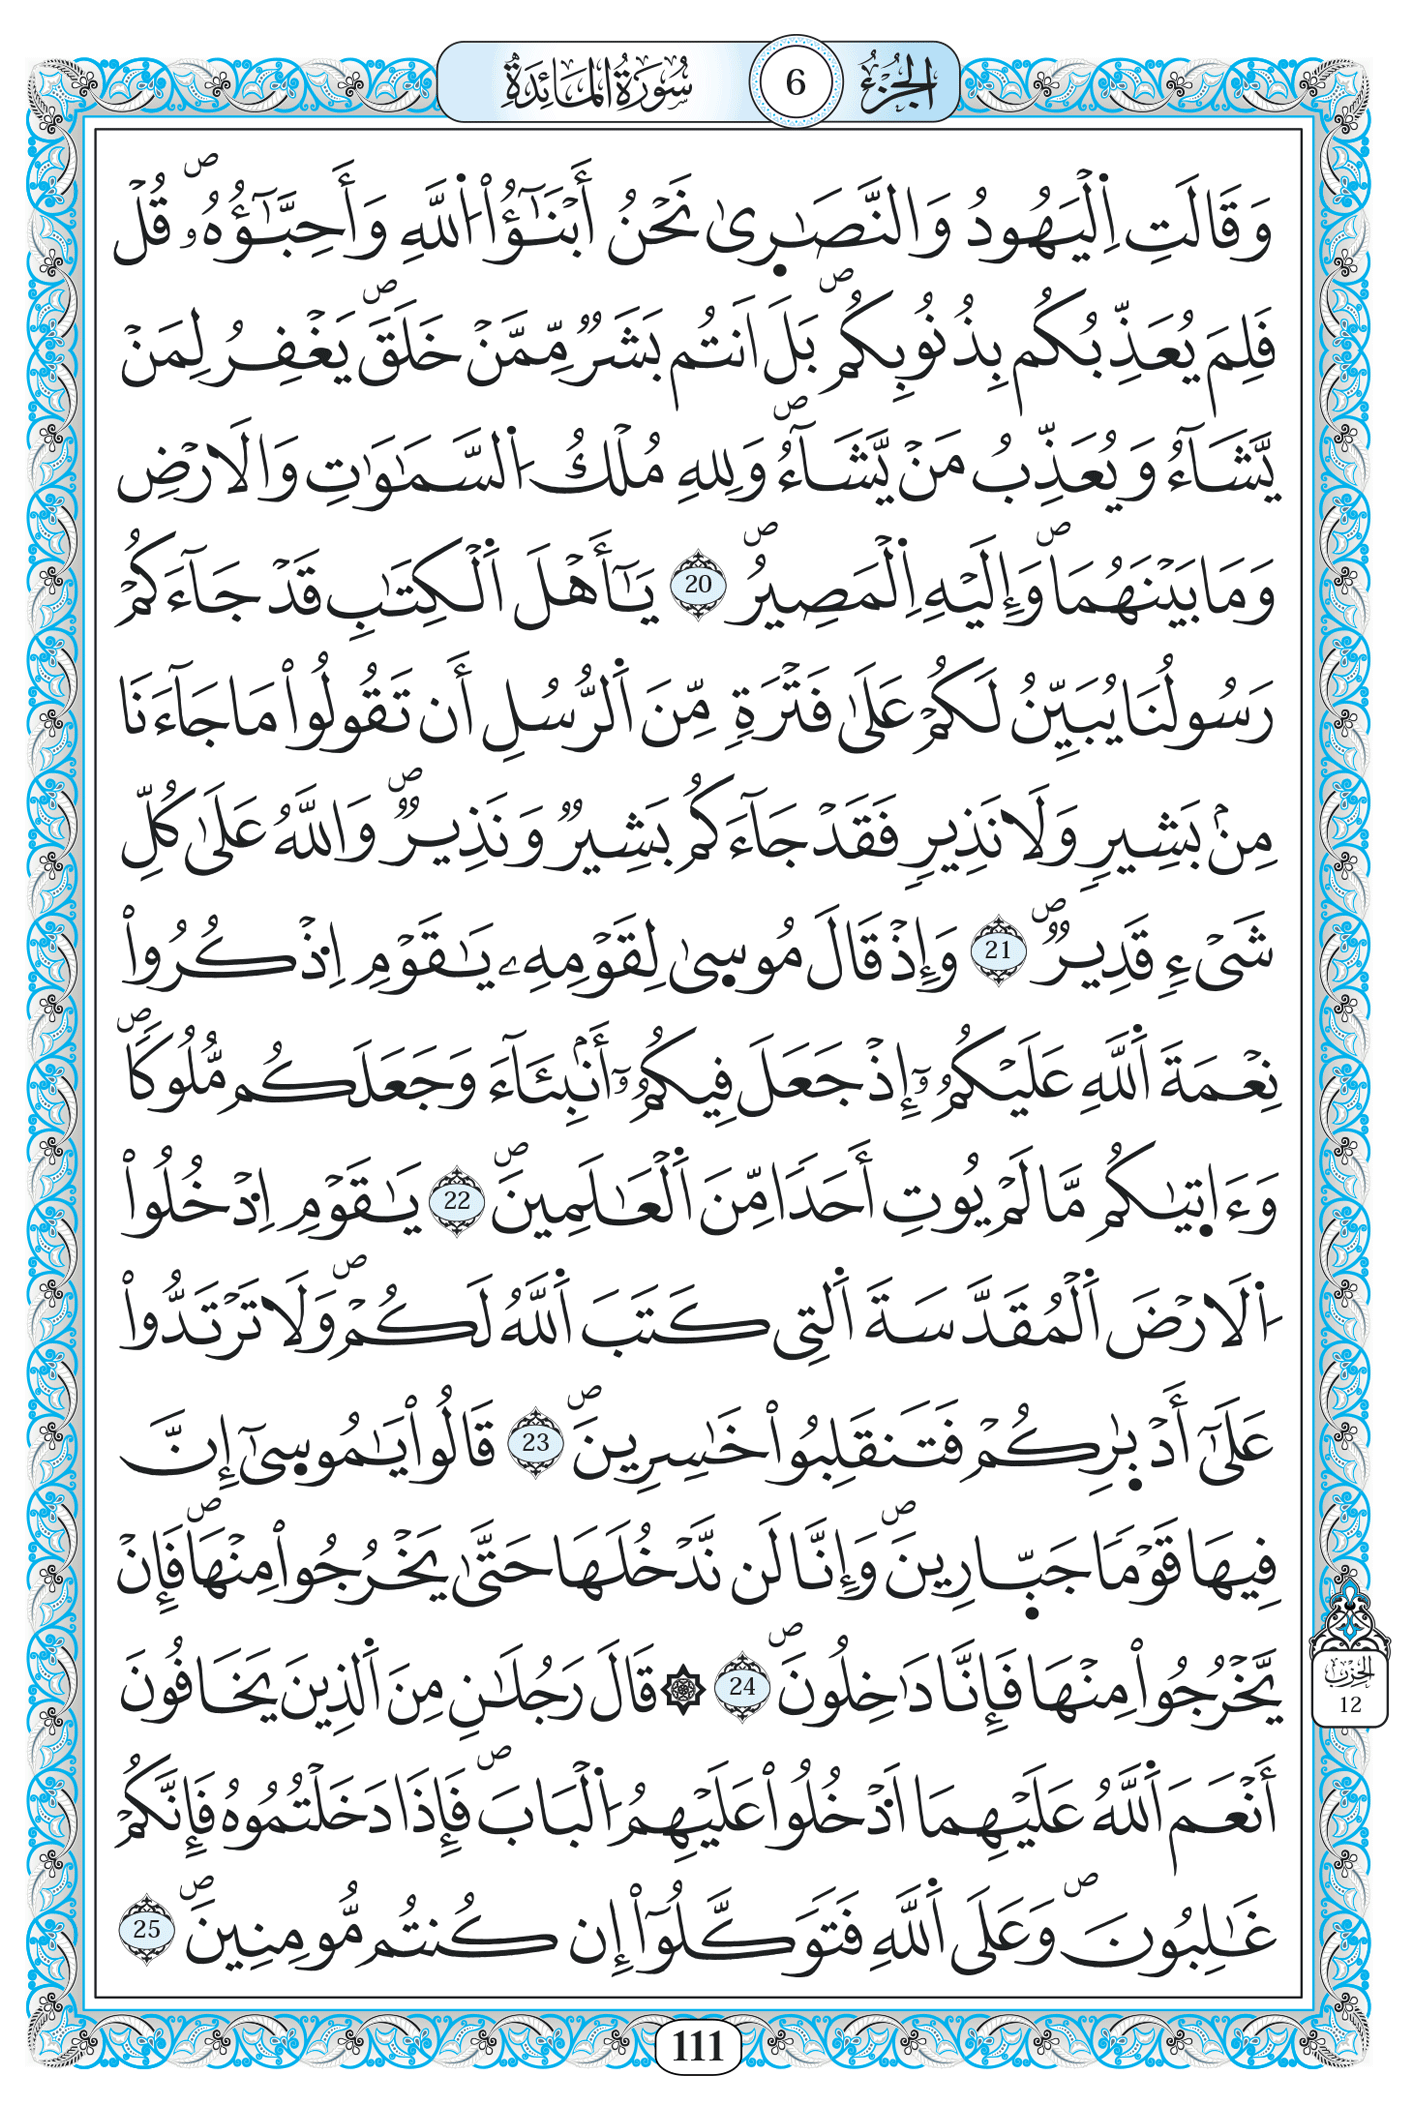 الجزء 6 سورة المائدة
وَقَالَتِ اِ۬لْيَهُودُ وَالنَّصَٰرٜىٰ نَحْنُ أَبْنَٰٓؤُاْ اُ۬للَّهِ وَأَحِبَّٰٓؤُهُۥۖ قُلْ
فَلِمَ يُعَذِّبُكُم بِذُنُوبِكُمۖ بَلَ اَنتُم بَشَرٞ مِّمَّنْ خَلَقَۖ يَغْفِرُ لِمَنْ
يَّشَآءُ وَيُعَذِّبُ مَنْ يَّشَآءُۖ وَلِلهِ مُلْكُ اُ۬لسَّمَٰوَٰتِ وَالَارْضِ
وَمَا بَيْنَهُمَاۖ وَإِلَيْهِ اِ۬لْمَصِيرُۖ 20 يَٰٓأَهْلَ اَ۬لْكِتَٰبِ قَدْ جَآءَكُمْ
رَسُولُنَا يُبَيِّنُ لَكُمْ عَلَىٰ فَتْرَةٖ مِّنَ اَ۬لرُّسُلِ أَن تَقُولُواْ مَا جَآءَنَا
مِنۢ بَشِيرٖ وَلَا نَذِيرٖ فَقَدْ جَآءَكُم بَشِيرٞ وَنَذِيرٞۖ وَاللَّهُ عَلَىٰ كُلِّ
شَےْءٖ قَدِيرٞۖ 21 وَإِذْ قَالَ مُوسٜىٰ لِقَوْمِهِۦ يَٰقَوْمِ اِ۟ذْكُرُواْ
نِعْمَةَ اَ۬للَّهِ عَلَيْكُمُۥٓ إِذْ جَعَلَ فِيكُمُۥٓ أَنۢبِئَآءَ وَجَعَلَكُم مُّلُوكاٗۖ
وَءَاتٜىٰكُم مَّا لَمْ يُوتِ أَحَداٗ مِّنَ اَ۬لْعَٰلَمِينَۖ 22 يَٰقَوْمِ اِ۟دْخُلُواْ
اُ۬لَارْضَ اَ۬لْمُقَدَّسَةَ اَ۬لتِے كَتَبَ اَ۬للَّهُ لَكُمْۖ وَلَا تَرْتَدُّواْ
عَلَىٰٓ أَدْبٰٜرِكُمْ فَتَنقَلِبُواْ خَٰسِرِينَۖ 23 قَالُواْ يَٰمُوسٜىٰٓ إِنَّ
فِيهَا قَوْماٗ جَبّٜارِينَۖ وَإِنَّا لَن نَّدْخُلَهَا حَتَّىٰ يَخْرُجُواْ مِنْهَاۖ فَإِنْ
يَّخْرُجُواْ مِنْهَا فَإِنَّا دَٰخِلُونَۖ 24 ۞ قَالَ رَجُلَٰنِ مِنَ اَ۬لذِينَ يَخَافُونَ
أَنْعَمَ اَ۬للَّهُ عَلَيْهِمَا اَ۟دْخُلُواْ عَلَيْهِمُ اُ۬لْبَابَۖ فَإِذَا دَخَلْتُمُوهُ فَإِنَّكُمْ
غَٰلِبُونَۖ وَعَلَى اَ۬للَّهِ فَتَوَكَّلُوٓاْ إِن كُنتُم مُّومِنِينَۖ 25
الحزب
12
111